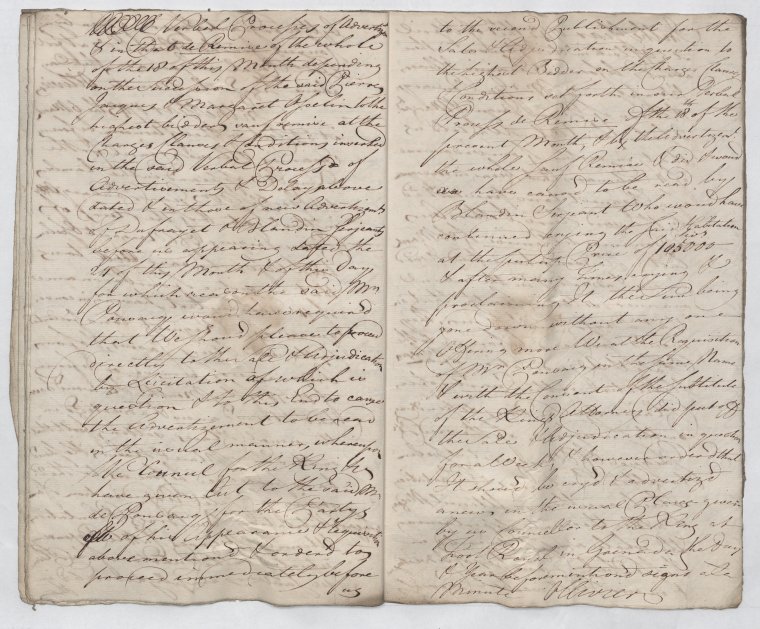 Verbal Process of Advertizm.
& in that de Remise of the whole
of the 18 of this Month depending
on the Land from of the said Pierre
Jacques & Margaret Asselin to the
highest bidder sauf remise at the
Charges Clauses & Conditions inserted
in the said Verbal Process of
Advertizements & Delay above
dated & in those of new Advertizements
of Dufrayet & Blandin Serjeants
before us appearing dated the
24 of this Month & of this Day
for which reason the said Mr.
would have required
that We should please to proceed
directly to the Sale & Adjudication
by Licitation of which is
question & to this End to cause
the advertizement to be read
in the usual manner, whereupon
We Council for the King &c
have given Act to the said Mr.
de for the Party
of his Appearance & Requisition
abovementioned & orderd to
proceed immediately before
us
to the second Publishment for the
Sale & Adjudication in question to
the highest Bidder on the Charges Clauses
Conditions set forth in our Verbal
Process de Remise of the 18th. of the
present Month, & the Advertizement
the whole sauf Remise & did & would
have caused to be read by
Blandin Serjeant Who would have
continued crying the said Habitation
at the present Price of 105000 livs
& after many times crying &
proclaiming it the Sun being
gone down without any one
Offering more We at the Requisition
of Mr. in the said Name
& with the Consent of the Substitute
of the King's Attorney did put off
the Sale & Adjudication in question
for a Week & however orderd that
It should be cryed & advertizd
anew in the usual Places given
by us Councillor to the King at
Fort Royal in Grenada the Day
& Year beforementioned signd at the
Minute